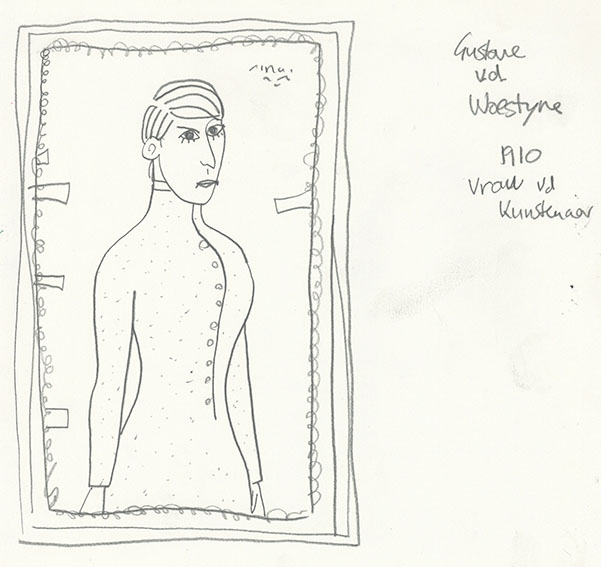 Gustave
vd
Woestyne
1910
vrouw vd
Kunstenaar